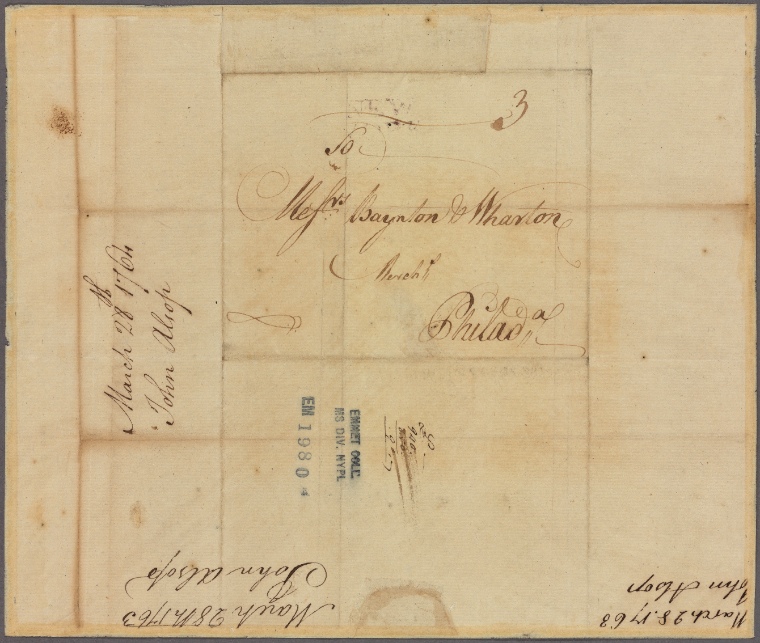 3
To
Messrs Baynton & Wharton
Merchts
Philada
March 28th 1764
John Alsop
EMMET COLL.
MS DIV. NYPL
EM 1980
March 28th 1763
John Alsop
March 28. 1763
John Alsop